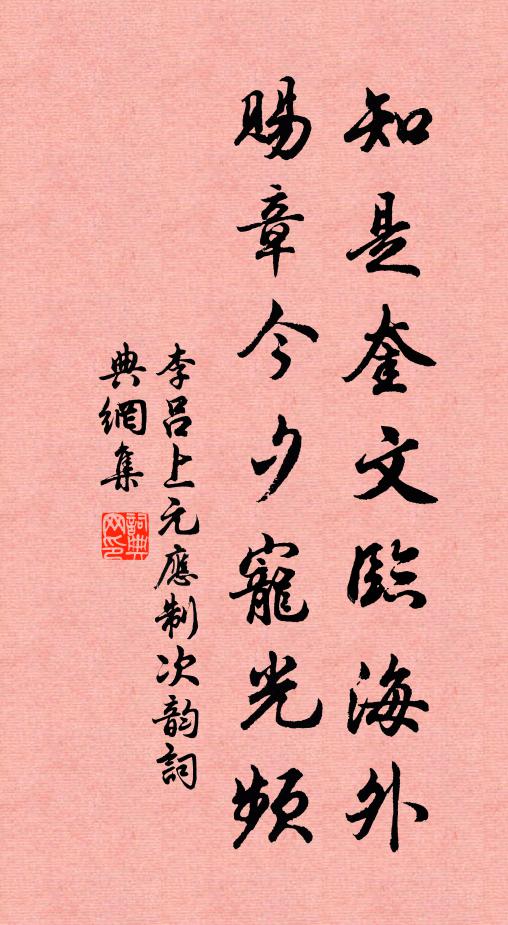 知是奎文臨海外
賜章今夕寵光頻
李呂上元應制次韵詞
典網集
詞典
网印